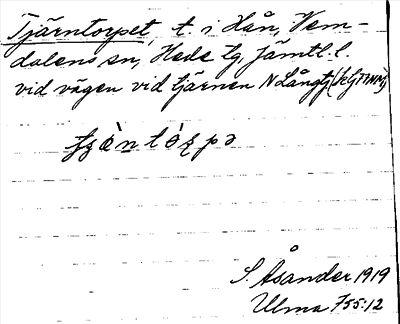 Tjärntorpet, t. i Hån, Vem-
dalens sn, Hede tg, Jämtl. l.
vid vägen vid tjärnen N Långtj
S. Åsander 1919
Ulma 755:12